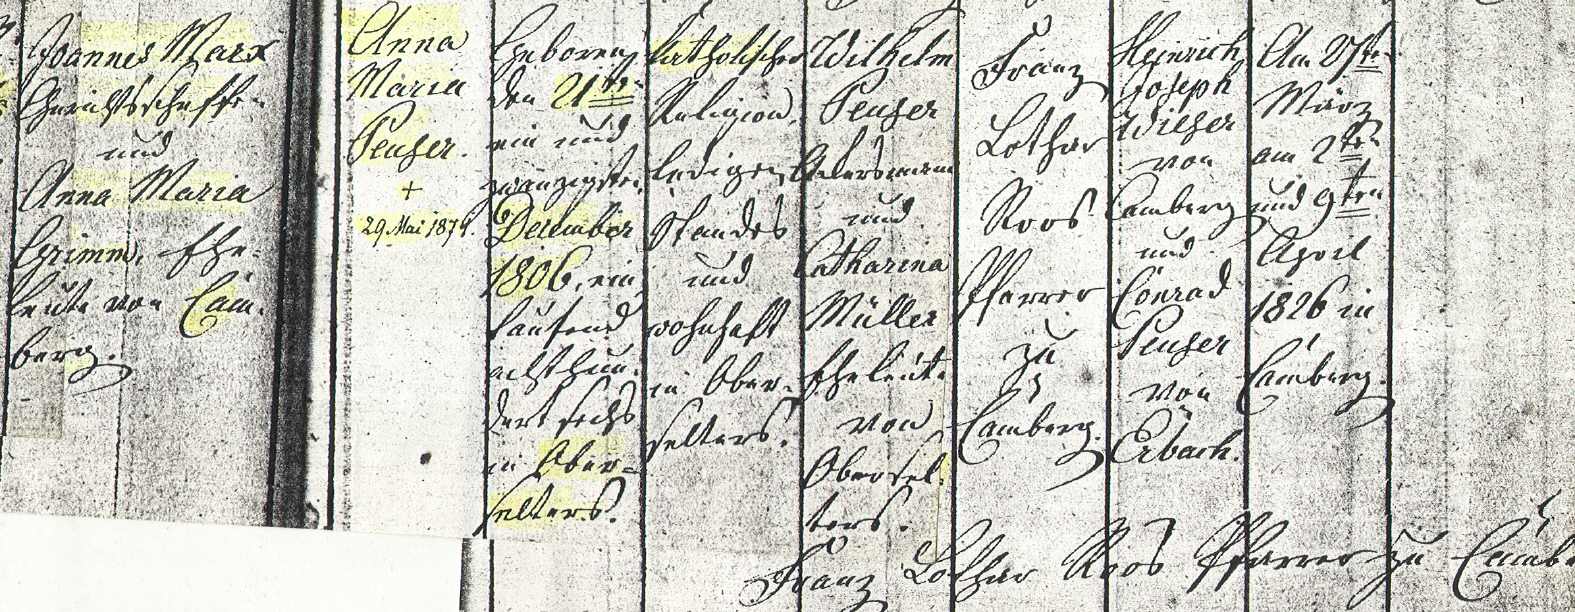 Joannes Marx
Gerichtsscheffen
und
Anna Maria
Grimm, Ehe-
leute von Cam-
berg.
Anna
Maria
Peuser.
+
29. Mai 1874.
Geboren
den 21ten
ein und
zwanzigsten
December
1806, ein
tausend
achthun-
dert sechs
in Ober-
selters.
katholischer
Religion,
ledigen
Standes
und
wohnhaft
in Ober-
selters.
Wilhelm
Peuser
Ackersmann
und
Catharina
Müller
Eheleute
von
Obersel-
ters.
Franz
Lothar
Roos
Pfarrer
zu
Camberg.
Heinrich
Joseph
Wieser
von
Camberg
und
Conrad
Peuser
von
Erbach.
Am 27ten
März
am 2ten
und 9ten
April
1826 in
Camberg.
Franz Lothar Roos Pfarrer zu